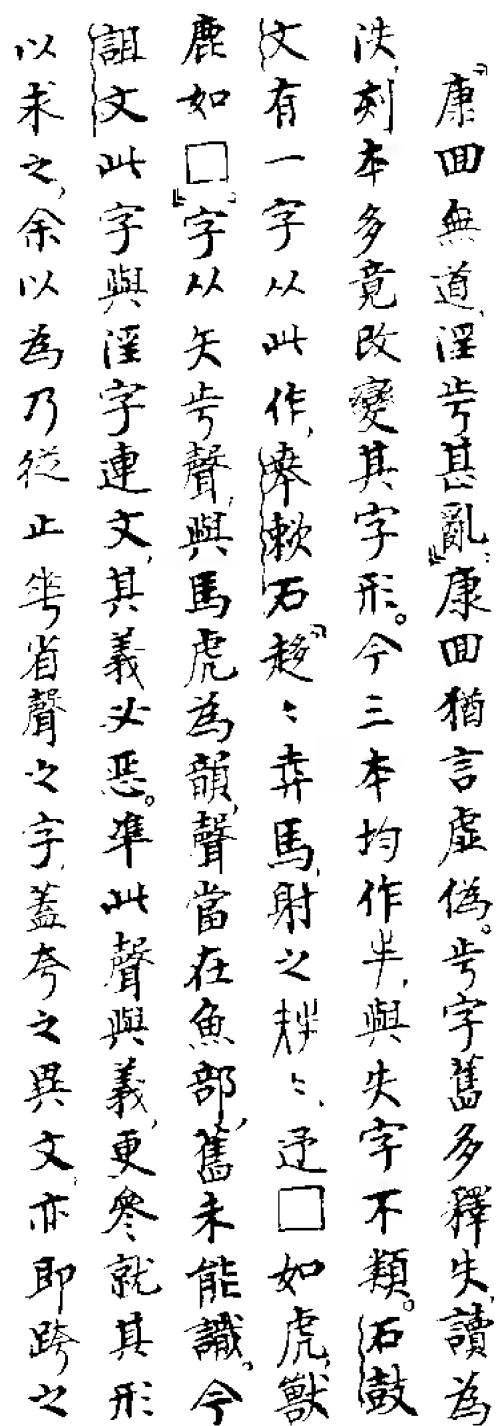 「康回無道，淫𡴎甚亂」：康回猶言虛偽。𡴎字舊多釋失，讀為
泆，刻本多竟改變其字形。今三本均作𡴎，與失字不類。石鼓
文有一字从此作，奉敕石「趍〻𩣡馬，射之𥎊〻，迂□如虎，獸
鹿如□」。字从矢𡴎聲，與馬虎為韻，聲當在魚部，舊未能識。今
詛文此字與淫字連文，其義必惡。準此聲與義，更參就其形
以求之，余以為乃從止𠌶省聲之字，蓋夸之異文，亦即跨之